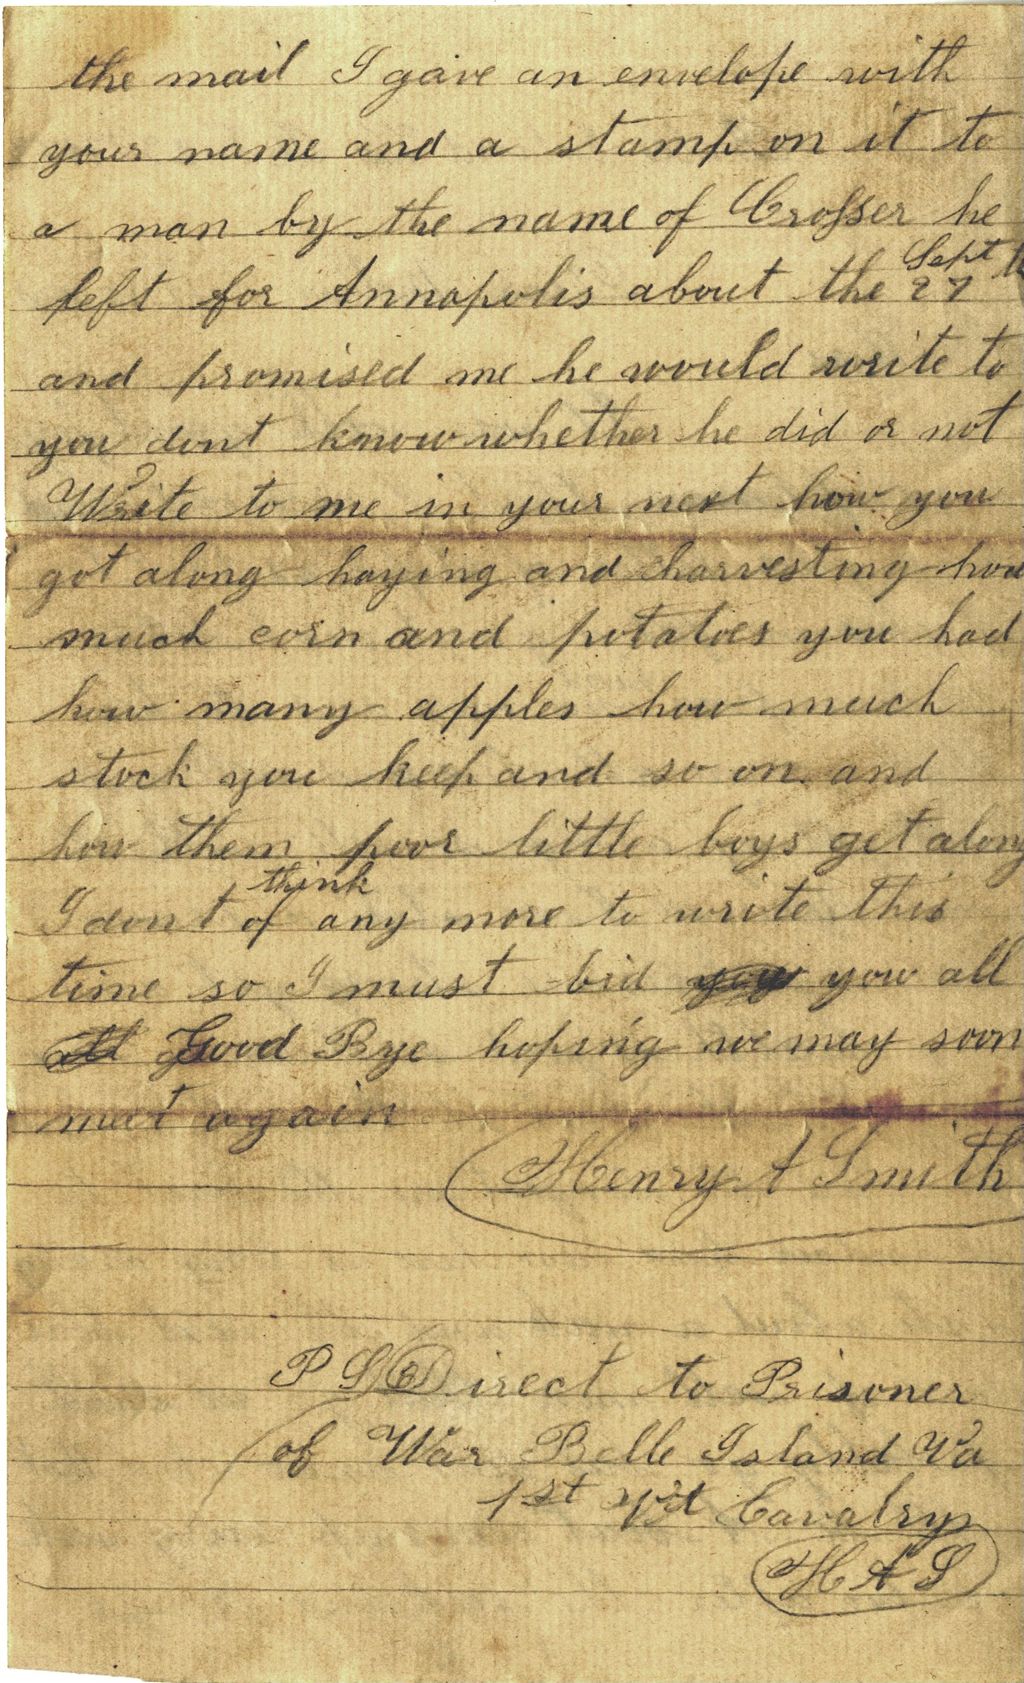 the mail I gave an envelope with
your name and a stamp on it to
a man by the name of Crosser he
left for Annapolis about the Sept 27
and promised me he would write to
you dont know whether he did or not
Write to me in your next how you
got along haying and harvesting how
much corn and potatoes you had
how many apples how much
stock you keep and so on and
how them poor little boys get along
I dont think of any more to write this
time so I must bid you all
Good Bye hoping we may soon
meet again
Henry A Smith
P S Direct to Prisoner
of War Belle Island Va
1st Vt Cavalry
H A S